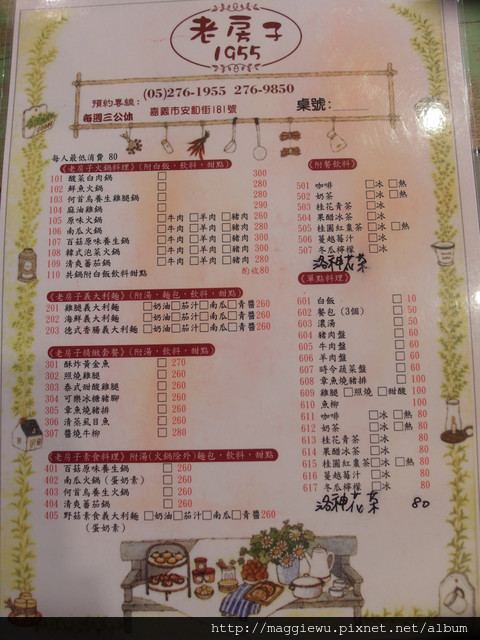 老房子
1955
(05)276-1955 276-9850
預約專線:
嘉義市安和街181號
每週三公休
桌號:
每人最低消費 80
《老房子火鍋料理》(附白飯,飲料,甜點)
101 酸菜白肉鍋 □ 300
102 鮮魚火鍋 □ 280
103 何首烏養生雞腿鍋 □ 280
104 麻油雞鍋 □ 290
105 原味火鍋 □牛肉 □羊肉 □豬肉 260
106 南瓜火鍋 □牛肉 □羊肉 □豬肉 280
107 百菇原味養生鍋 □牛肉 □羊肉 □豬肉 300
108 韓式泡菜火鍋 □牛肉 □羊肉 □豬肉 300
109 清爽蕃茄鍋 □牛肉 □羊肉 □豬肉 280
110 共鍋附白飯飲料甜點 酌收80
《老房子義大利麵》(附湯,麵包,飲料,甜點
201 雞腿義大利麵 □奶油 □茄汁 □南瓜 □青醬260
202 海鮮義大利麵 □奶油 □茄汁 □南瓜 □青醬260
203 德式香腸義大利麵 □奶油 □茄汁 □南瓜 □青醬260
《老房子精緻套餐》(附湯,飲料,甜點
301 酥炸黃金魚 □ 270
302 照燒雞腿 □ 260
303 泰式甜酸雞腿 □ 260
304 可樂冰糖豬腳 □ 260
305 章魚燒豬排 □ 260
306 清蒸虱目魚 □ 260
307 醬燒牛柳 □ 280
《老房子素食料理》附湯(火鍋除外)麵包,飲料,甜點
401 百菇原味養生鍋 □ 260
402 南瓜火鍋(蛋奶素) □ 260
403 何首烏養生火鍋 □ 260
404 清爽蕃茄鍋 □ 260
405 野菇素食義大利麵 □奶油□茄汁□南瓜□青醬260
(蛋奶素)
《附餐飲料》
501 咖啡 □冰 □熱
502 奶茶 □冰 □熱
503 桂花青茶 □冰
504 果醋冰茶 □冰
505 桂圓紅棗茶 □冰 □熱
506 蔓越莓汁 □冰
507 冬瓜檸檬 □冰
洛神花茶
《單點料理》
601 白飯 □ 10
602 餐包(3個) □ 50
603 濃湯 □ 50
604 豬肉盤 □ 80
605 牛肉盤 □ 80
606 羊肉盤 □ 80
607 時令蔬菜盤 □ 80
608 章魚燒豬排 □ 100
609 雞腿 □照燒 □甜酸 100
610 魚柳 □ 100
611 咖啡 □冰 □熱 80
612 奶茶 □冰 □熱 80
613 桂花青茶 □冰 80
614 果醋冰茶 □冰 80
615 桂圓紅棗茶 □冰 □熱 80
616 蔓越莓汁 □冰 80
617 冬瓜檸檬 □冰 80
洛神花茶 80
http://maggiewu.pixnet.net/album